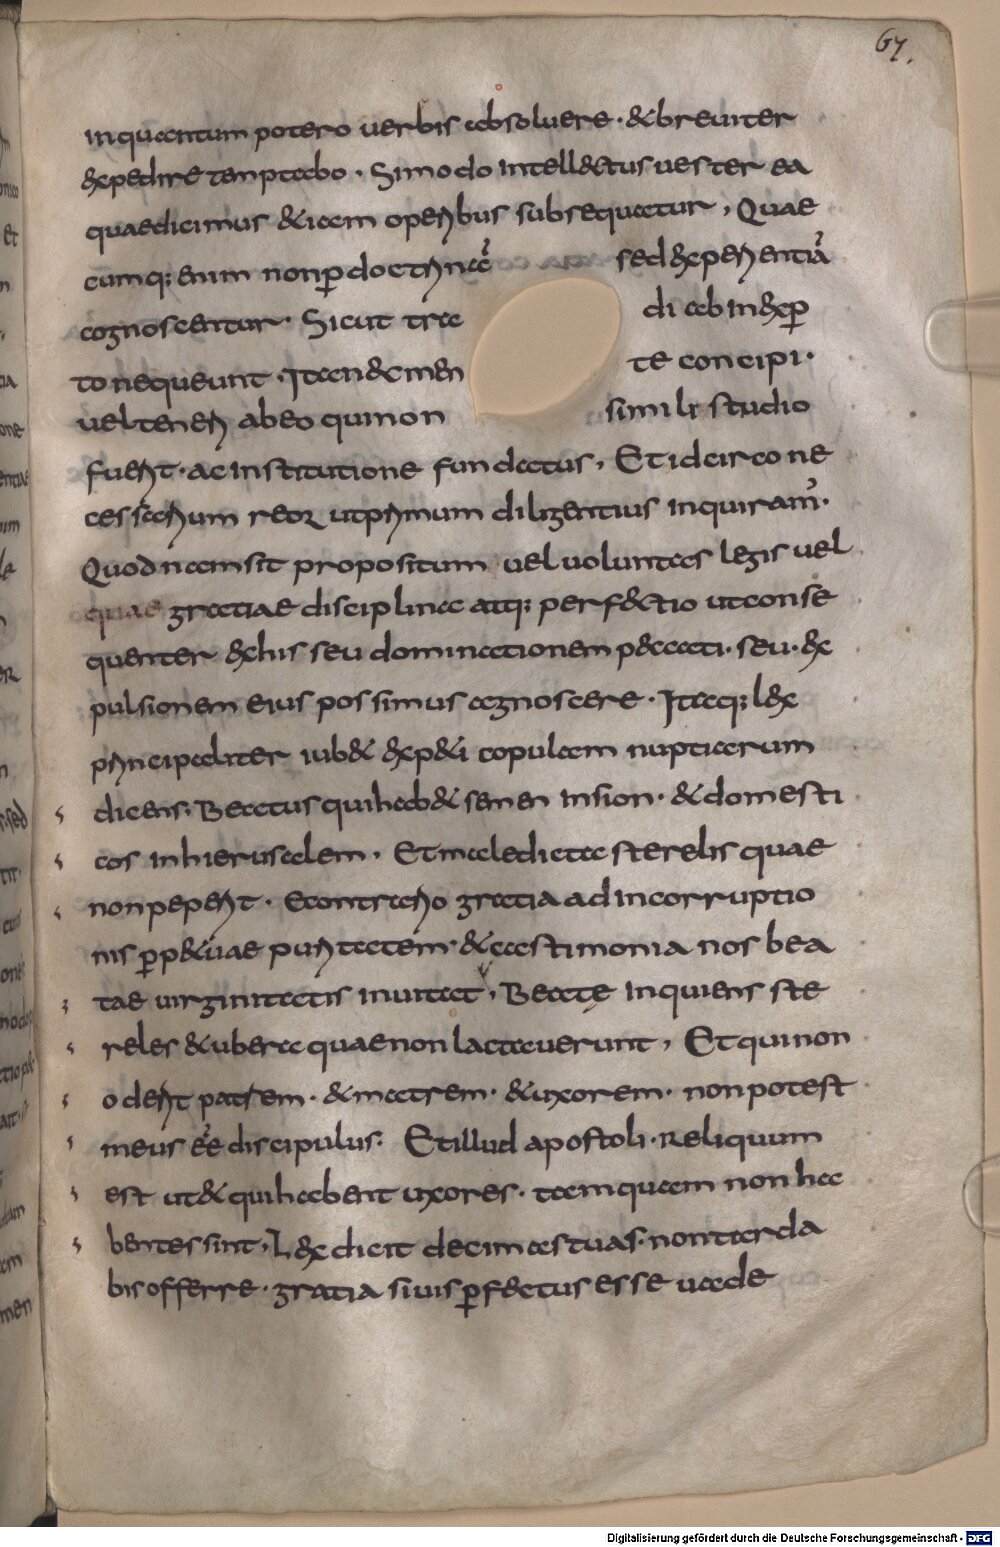 67.
inquantum potero uerbis absoluere · & breuiter
&xpedire temptabo · Simodo intell&ctus uester ea
quaedicimus & iam operibus subsequatur, Quae
cumq; enim nonp̄ doctrinā sed &xperientiā
cognoscentur · Sicut tra di ab in&xp̄
to nequeunt · Itaen&cmen te concipi ·
uel teneri abeo quinon simili studio
fuerit · ac institutione fundatus, Et idcirco ne
cessarium reor utprimum diligentius inquiram' ·
Quodnam sit propositum uel uoluntas legis uel
quae gratiae disciplina atq; perf&ctio utconse
quenter &xhis seu dominationem p&ccati · seu · &x
pulsionem eius possimus agnoscere · Itaq; l&x
principaliter iub& &xp&i copulam nuptiarum
dicens · Beatus quihab& semen insion · & domesti
cos inhierusalem · Et maledicta sterelis quae
nonpeperit · Econtrario gratia ad incorruptio
nis p̄p&uae puritatem · & castimonia nos bea
tae uirginitatis inuitat, Beatę inquiens ste
reles & ubera quae non lactauerunt, Et quinon
oderit patrem · & matrem · & uxorem · nonpotest
meus eē discipulus · Et illud apostoli · Reliquum
est ut & quihabent uxores · tamquam non ha
bentes sint, L&x dicit decimas tuas · nontarda
bis offerre · gratia siuis p̄f&ctus esse uade
Digitalisierung gefördert durch die Deutsche Forschungsgemeinschaft · DFG